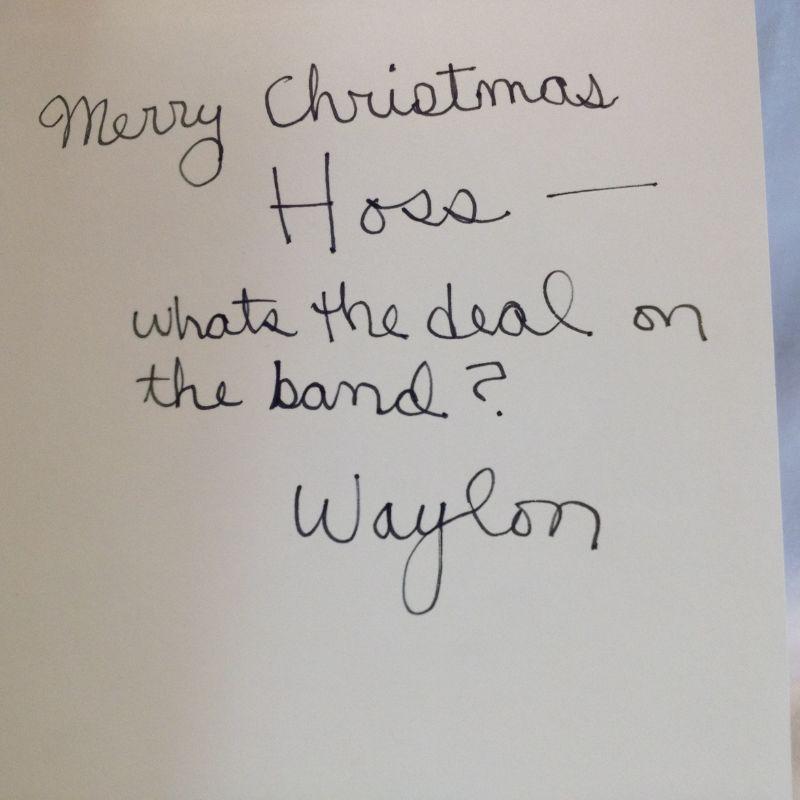 Merry Christmas
Hoss —
whats the deal on
the band?
Waylon